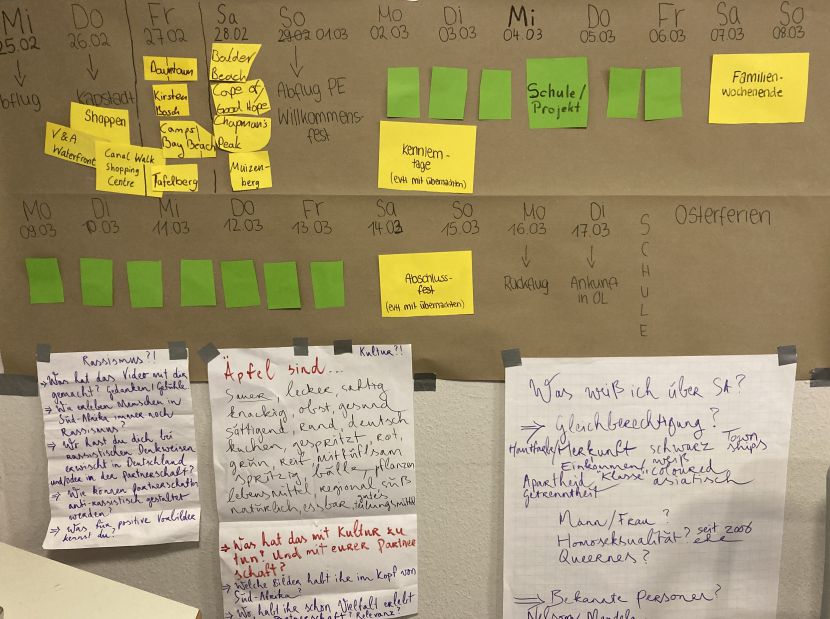 Mi Do Fr Sa So Mo Di Mi Do Fr Sa So
25.02 26.02 27.02 28.02 29.02 01.03 02.03 03.03 04.03 05.03 06.03 07.03 08.03
Abflug
Kapstadt
Shoppen
V&A
Waterfront
Canal Walk
Shopping
Centre
Downtown
Kirsten
Bosch
Camps
Bay Beach
Tafelberg
Bolder
Beach
Cape of
Good Hope
Chapman's
Peak
Muizen-
berg
Abflug PE
Willkommens-
fest
Schule/
Projekt
Kennlern-
tage
(evtl mit übernachten)
Familien-
wochenende
Mo Di Mi Do Fr Sa So Mo Di
09.03 10.03 11.03 12.03 13.03 14.03 15.03 16.03 17.03
Abschluss-
fest
(evtl mit übernachten)
Rückflug
Ankunft
in OL
SCHULE
Osterferien
Rassismus?!
⇒ Was hat das Video mit dir
gemacht? Gedanken/Gefühle
⇒ Wie erleben Menschen in
Süd-Afrika immer noch
Rassismus?
⇒ Wo hast du dich bei
rassistischen Denkweisen
erwischt in Deutschland
und/oder in der Partnerschaft?
⇒ Wie können Partnerschaften
anti-rassistisch gestaltet
werden?
⇒ Was für positive Vorbilder
kennst du?
Kultur?!
Äpfel sind...
Sauer, lecker, saftig
knackig, obst, gesund
sättigend, rund, deutsch
kuchen, gespritzt, rot,
grün, reif,
spritzig, bälle, pflanzen
lebensmittel, regional, süß
natürlich, essbar, gutes
⇒ Was hat das mit Kultur zu
tun? Und mit eurer Partner
schaft?
⇒ Welche Bilder habt ihr im Kopf von
Süd-Afrika?
⇒ Wo habt ihr schon Vielfalt erlebt
Partnerschaft? Relevanz?
Was weiß ich über SA?
⇒ Gleichberechtigung?
Hautfarbe/Herkunft schwarz Town
ships
Einkommen/ weiß
Klasse coloured
Apartheid asiatisch
Getrenntheit
Mann/Frau?
Homosexualität? seit 2006
ehe
Queernes?
⇒ Bekannte Personen?
Nelson Mandela